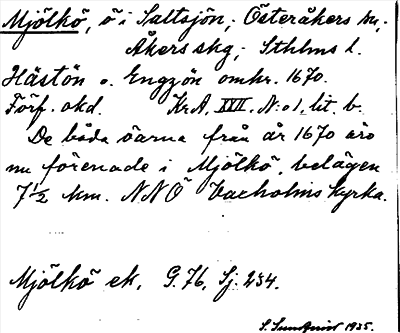 Mjölkö, ö i Saltsjön, Österåkers sn,
Åkers skg, Sthlms l.
Hästön o. Engzön omkr. 1670.
Förf. okd. Kr.A. XXII. N:o 1, lit. b.
De båda öarna från år 1670 äro
nu förenade i Mjölkö, belägen
7½ km. NNÖ Vaxholms kyrka.
Mjölkö ek. G. 76, Sj. 234.
S. 1935.